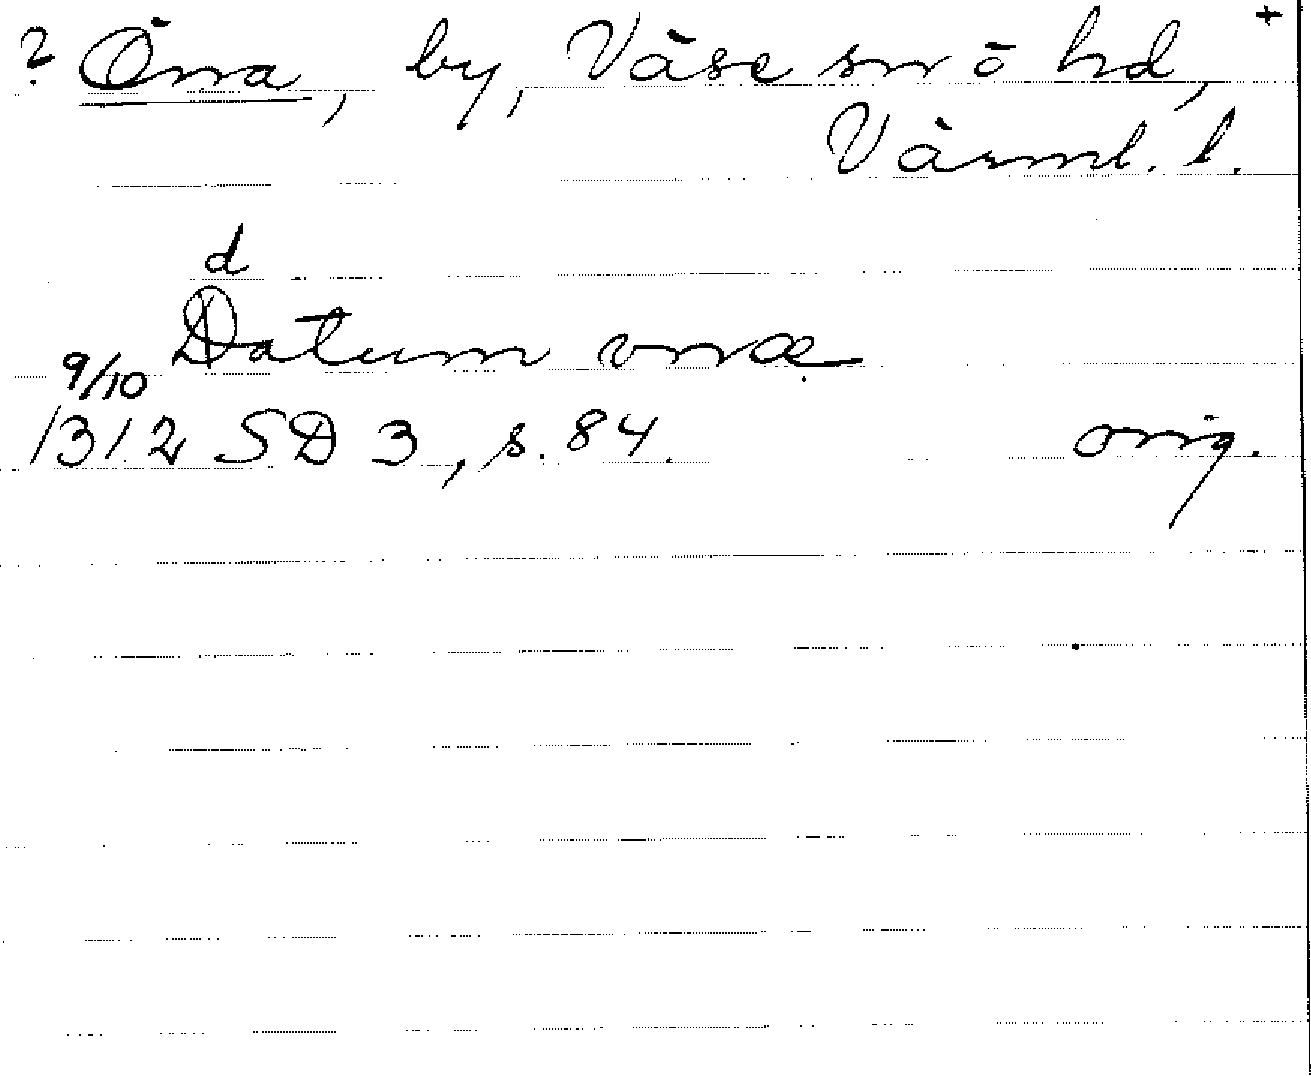 ? Önna, by, Väse sn o hd, +
Värml. l.
d
Datum vnæ
9/10
1312 SD 3, s. 84. orig.